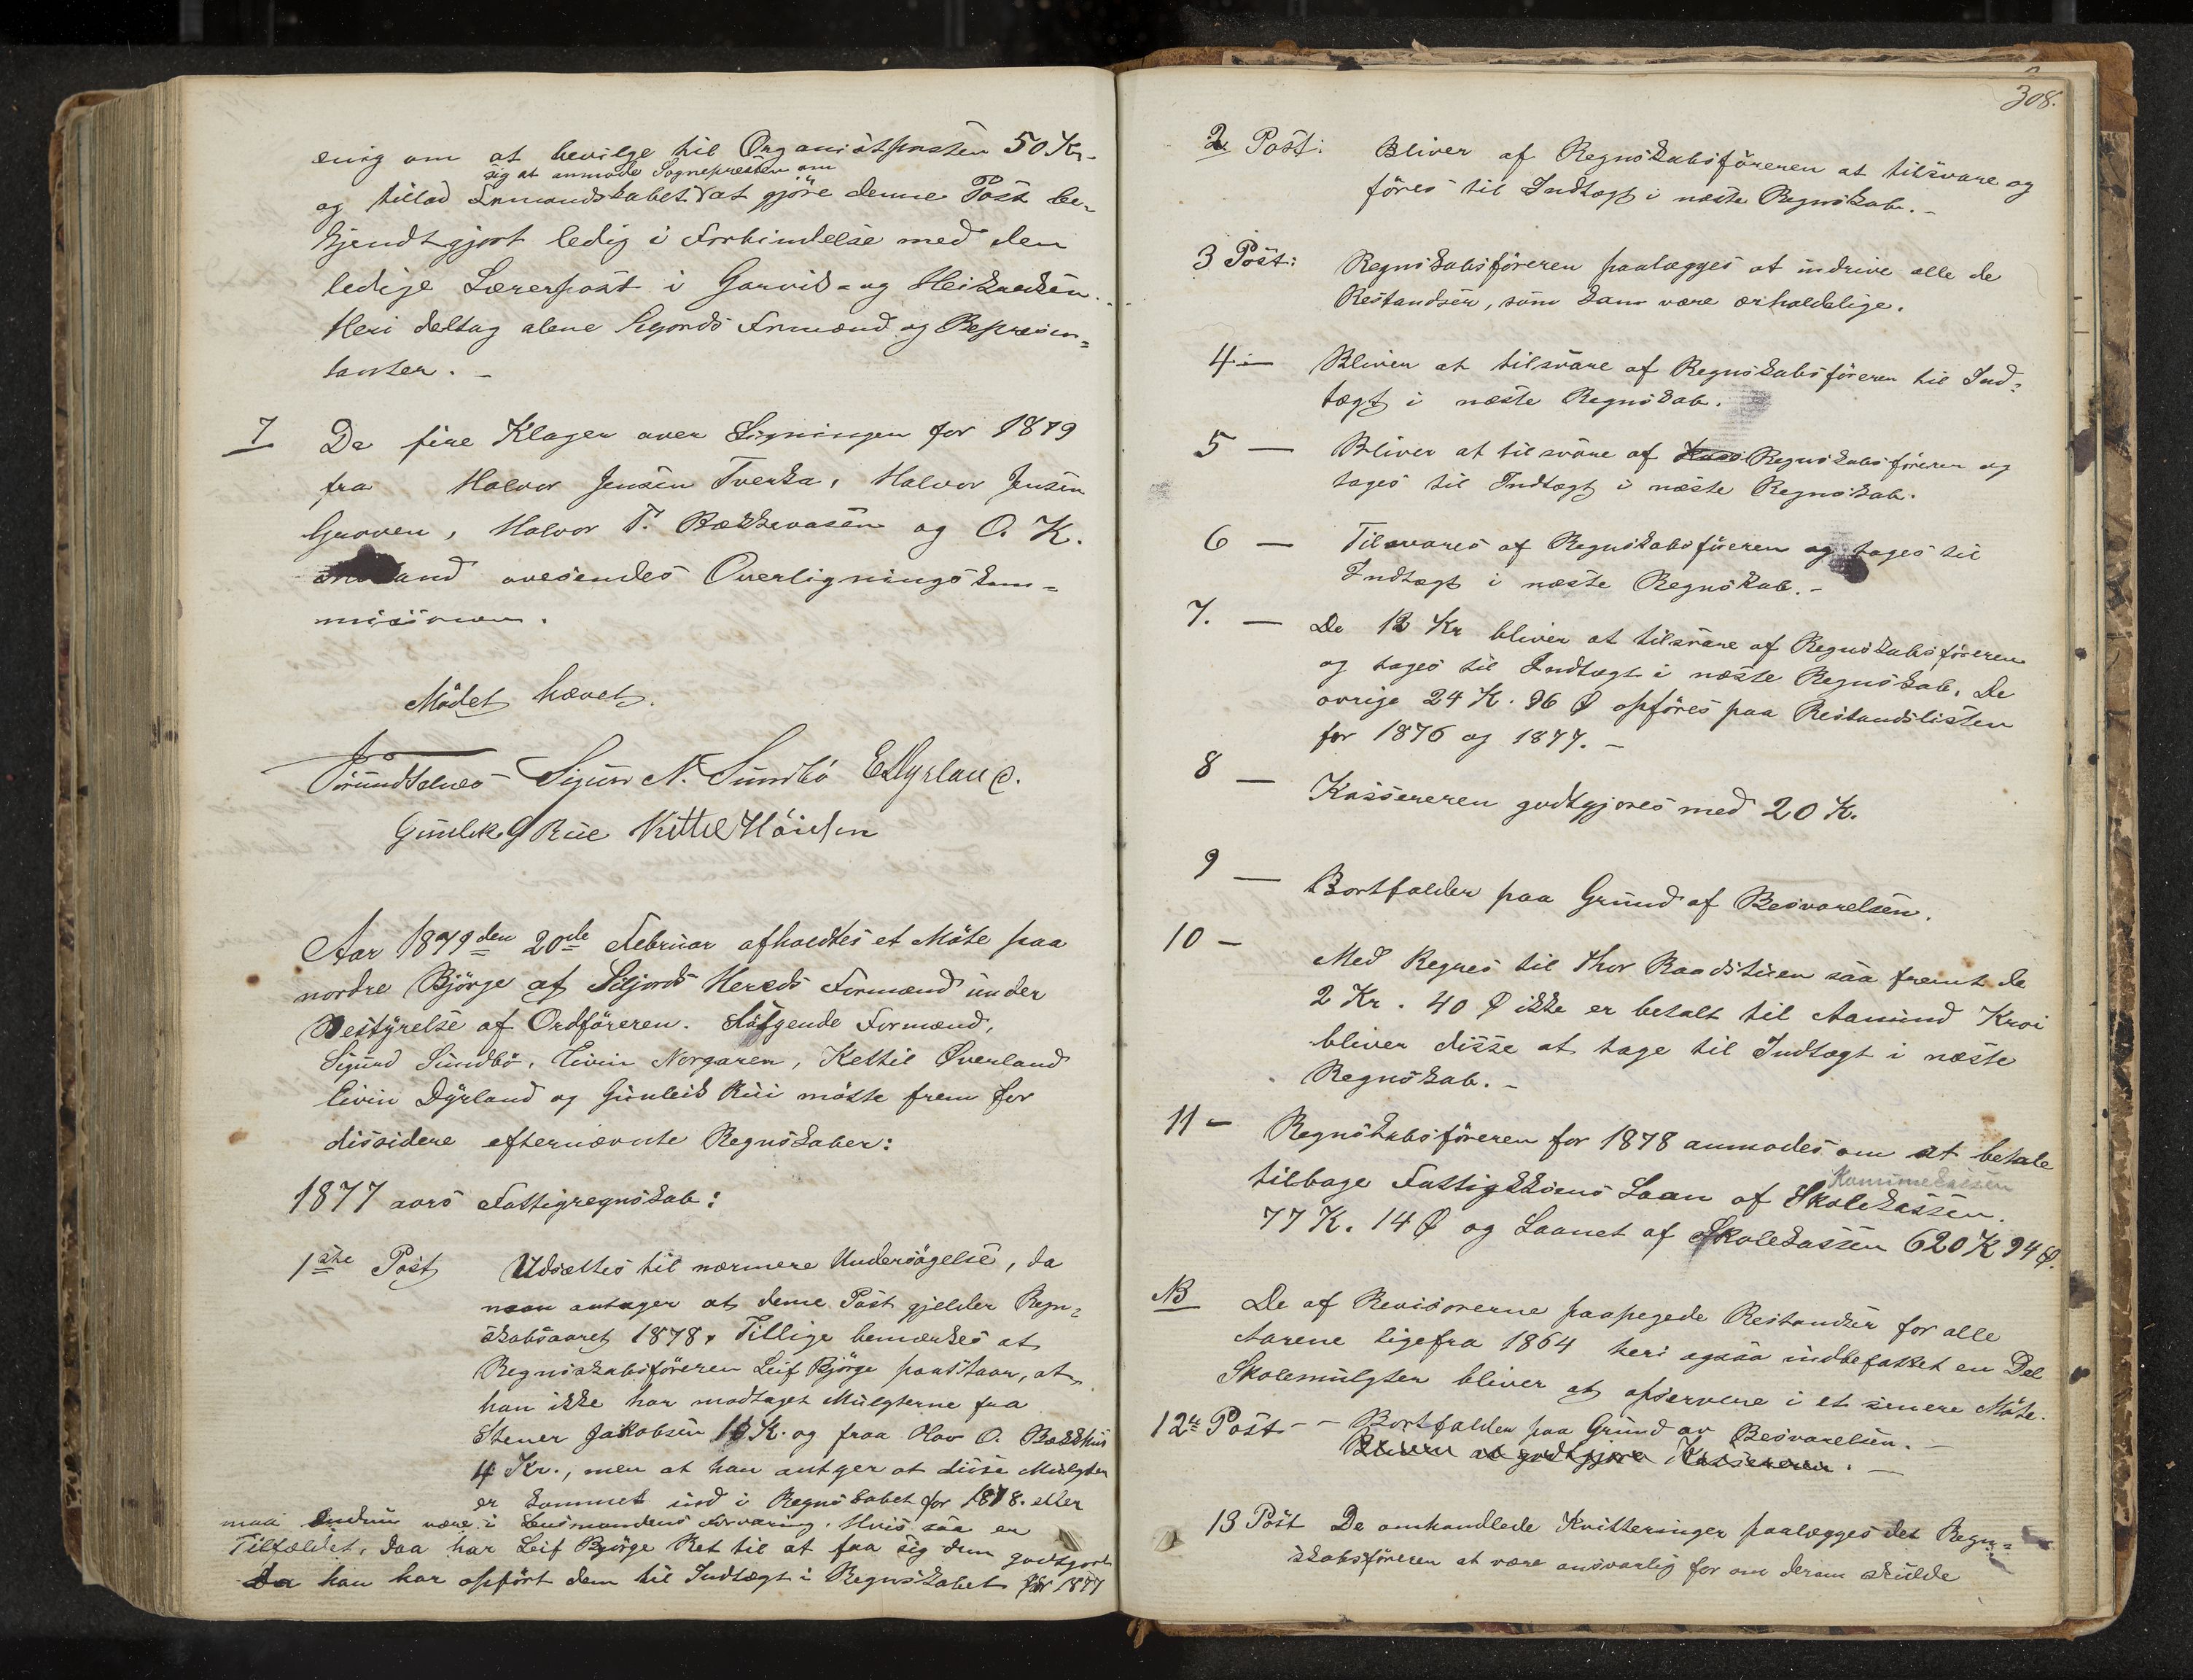 enig om at bevilge til Organistposten 50 Kr.
sig at anmode Sognepresten om
og tillod Formandskabet at gjöre denne Post be-
kjendtgjort ledig i Forbindelse med den
ledige Lærerpost i Garvik- og Heikredsen.
Heri deltog alene Segjords Formænd og Represen-
tanter. -
7 De fire Klager over Ligningen for 1879
fra Halvor Jensen Tveita, Halvor Jensen
Grooven, Halvor T. Bækkevasen og O. K.
and oversendes Overligningskom-
missionen.
Mödet hævet.
Sigurd N. Sundbö E Dyrland.
Gunlek G Rue Kittil Höisen
Aar 1879 den 20de Februar afholdtes et Möte paa
nordre Björge af Seljords Hereds Formænd under
Bestyrelse af Ordföreren. Fölgende Formænd,
Sigurd Sundbö, Eivin Norgaren, Kettil Øverland
Eivin Dyrland og Gunleik Rui mötte frem for
dissidere efternævnte Regnskaber:
1877 aars Fattigregnskab:
1ste Post Udsættes til nærmere Undersögelse, da
man antager at denne Post gjelder Regn-
skabsaaret 1878. Tillige bemærkes at
Regnsskabsföreren Leif Björge paastaar, at
han ikke har modtaget Mulgterne fra
Stener Jakobsen 16 K. og fraa Olav O. Bækkhus
4 Kr., men at han antger at disse Mulgter
er kommet ind i Regnskabet for 1878. eller
maa endnu være i Lensmandens Forvaring. Hvis saa er
Tilfældet, daa har Leif Björge Ret til at faa sig dem godtgjort
da han har opfört dem til Indtægt i Regnskabet for 1877
308.
2 Post: Bliver af Regnskabsföreren at tilsvare og
föres til Indtægt i næste Regnskab. -
3 Post: Regnskabsföreren paalægges at indrive alle de
Restandser, som kan være erholdelige.
4 - Bliver at tilsvare af Regnskabsföreren til Ind-
tægt i næste Regnskab.
5 - Bliver at tilsvare af Kass Regnskabsföreren og
tages til Indtægt i næste Regnskab.
6 - Tilsvares af Regnskabsföreren og tages til
Indtægt i næste Regnskab. -
7. - De 12 Kr bliver at tilsvare af Regnskabsföreren
og tages til Indtægt i næste Regnskab. De
ovrige 24 K. 96 Ø opföres paa Restandslisten
for 1876 og 1877. -
8 - Kassereren godtgjores med 20 K.
9 - Bortfalder paa Grund af Besvarelsen.
10 - Med Regnes til Thor Raadstuen saa fremt de
2 Kr. 40 Ø ikke er betalt til Aamund Kroi
bliver disse at tage til Indtægt i næste
Regnskab. -
11 - Regnskabsföreren for 1878 anmodes om at betale
Kommekassen
tilbage Fattigkksens Laan af Skolekassen.
77 K. 14 Ø og Laanet af Skolekassen 620 K 94 Ø.
NB De af Revisorerne paapegede Restandser for alle
Aarene ligefra 1864 heri ogsaa indbefattet en Del
Skolemulgter bliver at opservere i et senere Möte.
12te Post - - Bortfalder paa Grund av Besvarelsen. -
Bliver at godtgjore Kassereren. -
13 Post De omhandlede Kvitteringer paalægges det Regn-
skabsföreren at være ansvarlig for om deram skulde